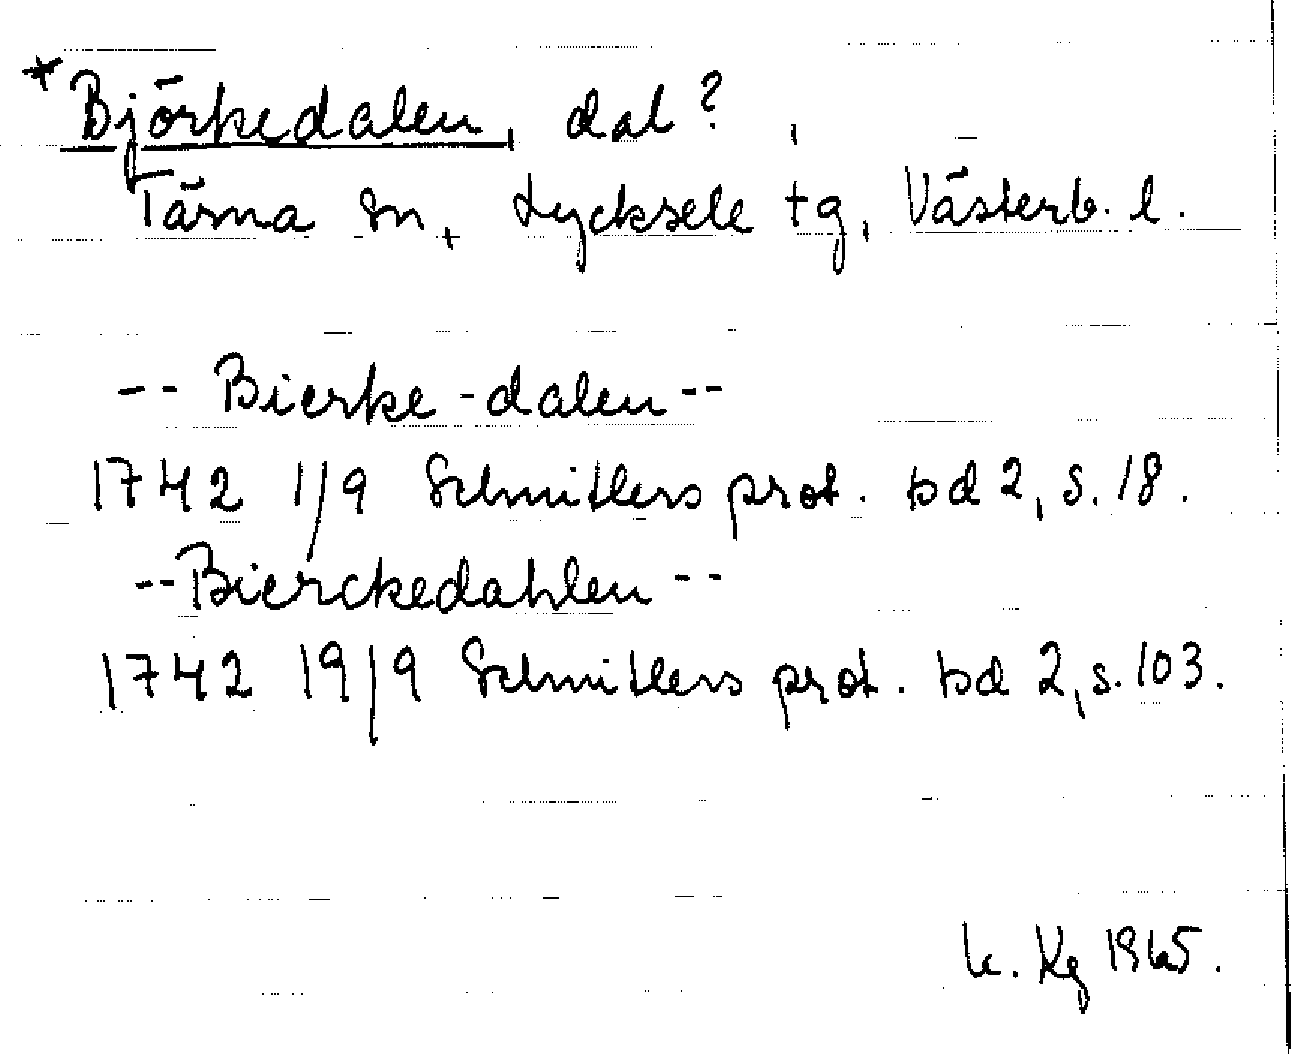 *Björkedalen, dal?,
Tärna sn, Lycksele tg, Västerb. l.
-- Bierke-dalen --
1742 1/9 Schnitlers prot. bd 2, s. 18.
-- Bierckedahlen --
1742 19/9 Schnitlers prot. bd 2, s. 103.
k. Kg 1965.